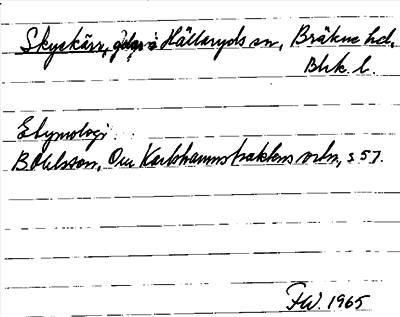 Skyekärr, gdsr i Hällaryds sn, Bräkne hd.
Blek. l.
Etymologi:
B Ohlsson, Om Karlshamnstraktens ortn, s 57.
FW. 1965